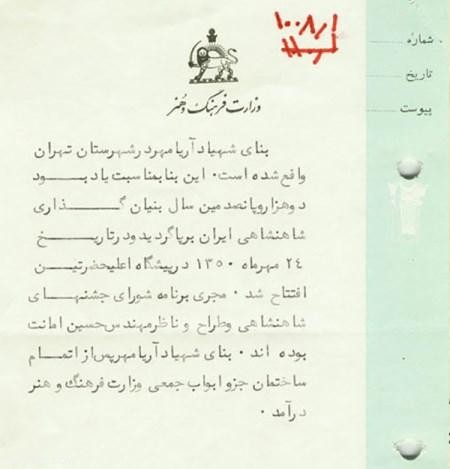 ۱۰۰۸/۱
شماره
تاریخ
پیوست
وزارت فرهنگ و هنر
بنای شهیاد آریامهر در شهرستان تهران
واقع شده است. این بنا بمناسبت یاد بود
دوهزار و پانصدمین سال بنیان گذاری
شاهنشاهی ایران برپا گردید و در تاریخ
۲۴ مهرماه ۱۳۵۰ در پیشگاه اعلیحضرتین
افتتاح شد. مجری برنامه شورای جشنهای
شاهنشاهی و طراح و ناظر مهندس حسین امانت
بوده اند. بنای شهیاد آریامهر پس از اتمام
ساختمان جزو ابواب جمعی وزارت فرهنگ و هنر
درآمد.